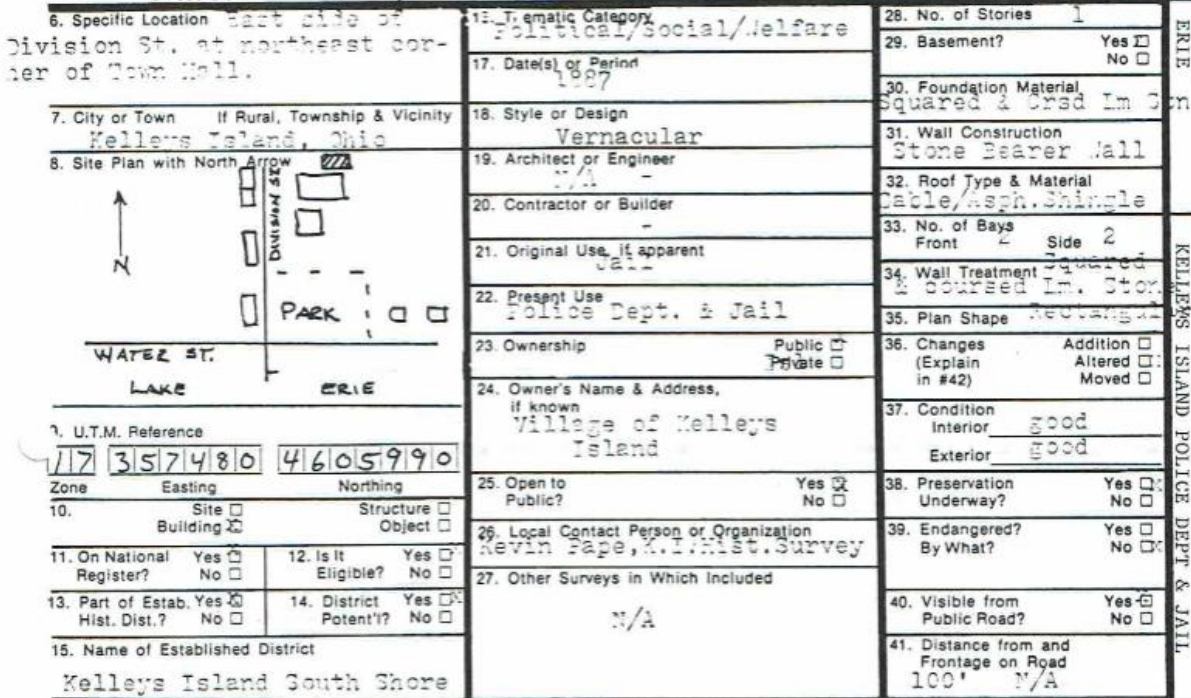 6. Specific Location East side of
Division St. at northeast cor-
ner of Town Hall.
7. City or Town If Rural, Township & Vicinity
Kelleys Island, Ohio
8. Site Plan with North Arrow
N
DIVISION ST.
PARK
WATER ST.
LAKE ERIE
9. U.T.M. Reference
17 357480 4605990
Zone Easting Northing
10. Site □ Structure □
Building ☒ Object □
11. On National Register? Yes □ No □
12. Is It Eligible? Yes □ No □
13. Part of Estab. Hist. Dist.? Yes ☒ No □
14. District Potent'l? Yes ☒ No □
15. Name of Established District
Kelleys Island South Shore
Thematic Category
Political/Social/Welfare
17. Date(s) or Period
1887
18. Style or Design
Vernacular
19. Architect or Engineer
N/A -
20. Contractor or Builder
-
21. Original Use, if apparent
Jail
22. Present Use
Police Dept. & Jail
23. Ownership Public ☒
Private □
24. Owner's Name & Address,
if known
Village of Kelleys
Island
25. Open to Yes ☒
Public? No □
26. Local Contact Person or Organization
Kevin Pape, K.I. Hist. Survey
27. Other Surveys in Which Included
N/A
28. No. of Stories 1
29. Basement? Yes ☒
No □
30. Foundation Material
Squared & Crsd Lm Stn
31. Wall Construction
Stone Bearer Wall
32. Roof Type & Material
Gable/Asph.Shingle
33. No. of Bays
Front 2 Side 2
34. Wall Treatment Squared
& coursed Lm. Stone
35. Plan Shape Rectangul
36. Changes Addition □
(Explain Altered ☒
in #42) Moved □
37. Condition
Interior good
Exterior good
38. Preservation Yes ☒
Underway? No □
39. Endangered? Yes □
By What? No ☒
40. Visible from Yes ☒
Public Road? No □
41. Distance from and
Frontage on Road
100' N/A
ERIE
KELLEYS ISLAND POLICE DEPT & JAIL